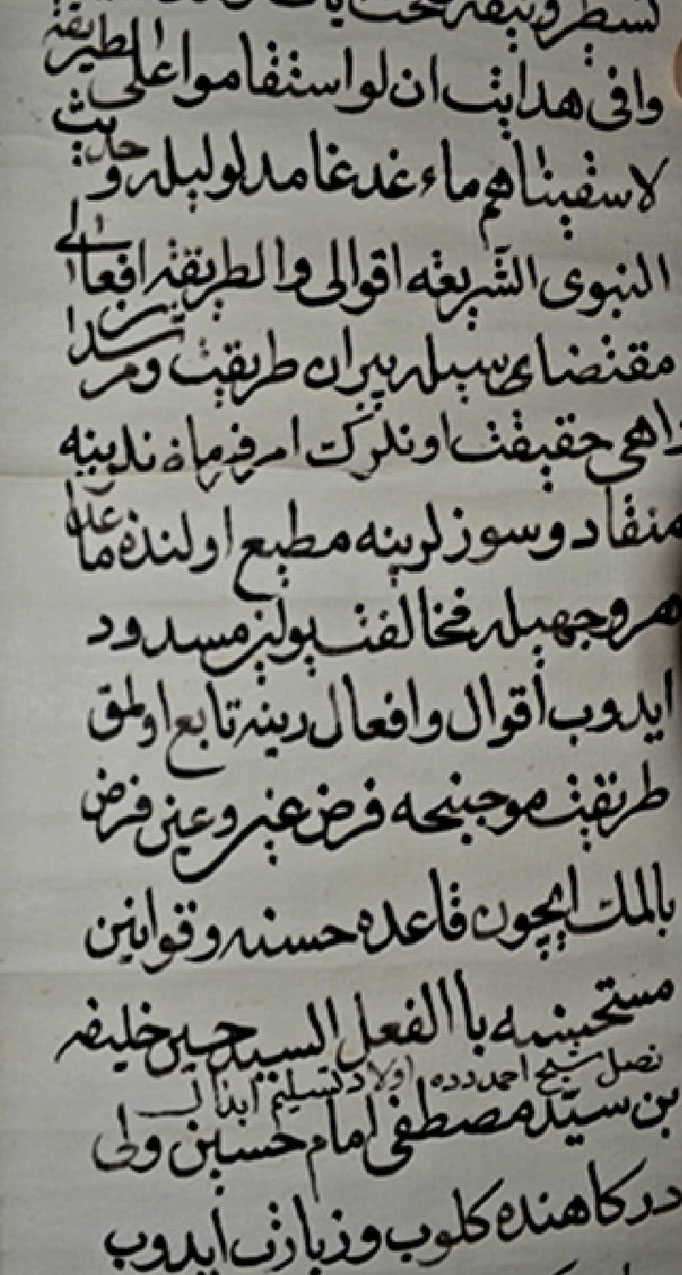 وافی هدایت ان لو استقاموا علی الطریقة
لاسقیناهم ماء غدغا مدلولیله و حدیث
النبوی الشریعه اقوالی والطریقة افعالی
مقتضای سیله پیران طریقت ومرشدا
زاهی حقیقت اوندرکت امر فرمانندینیه
منقاد و سوزلرینه مطیع اولنده ماعدا
هر وجهیله مخالفت یولین مسدود
ایدوب اقوال وافعال رینه تابع اولمق
طریقت موجبنجه فرض غیر وعین فرض
بالملک ایچون قاعده حسنه وقوانین
مستحسنه باالفعل السید حسین خلیفه
نصل شیخ احمد دده اولاد تسلیم ابدال
بن سید مصطفی امام حسین ولی
درکاهنده کلوب وزیارت ایدوب